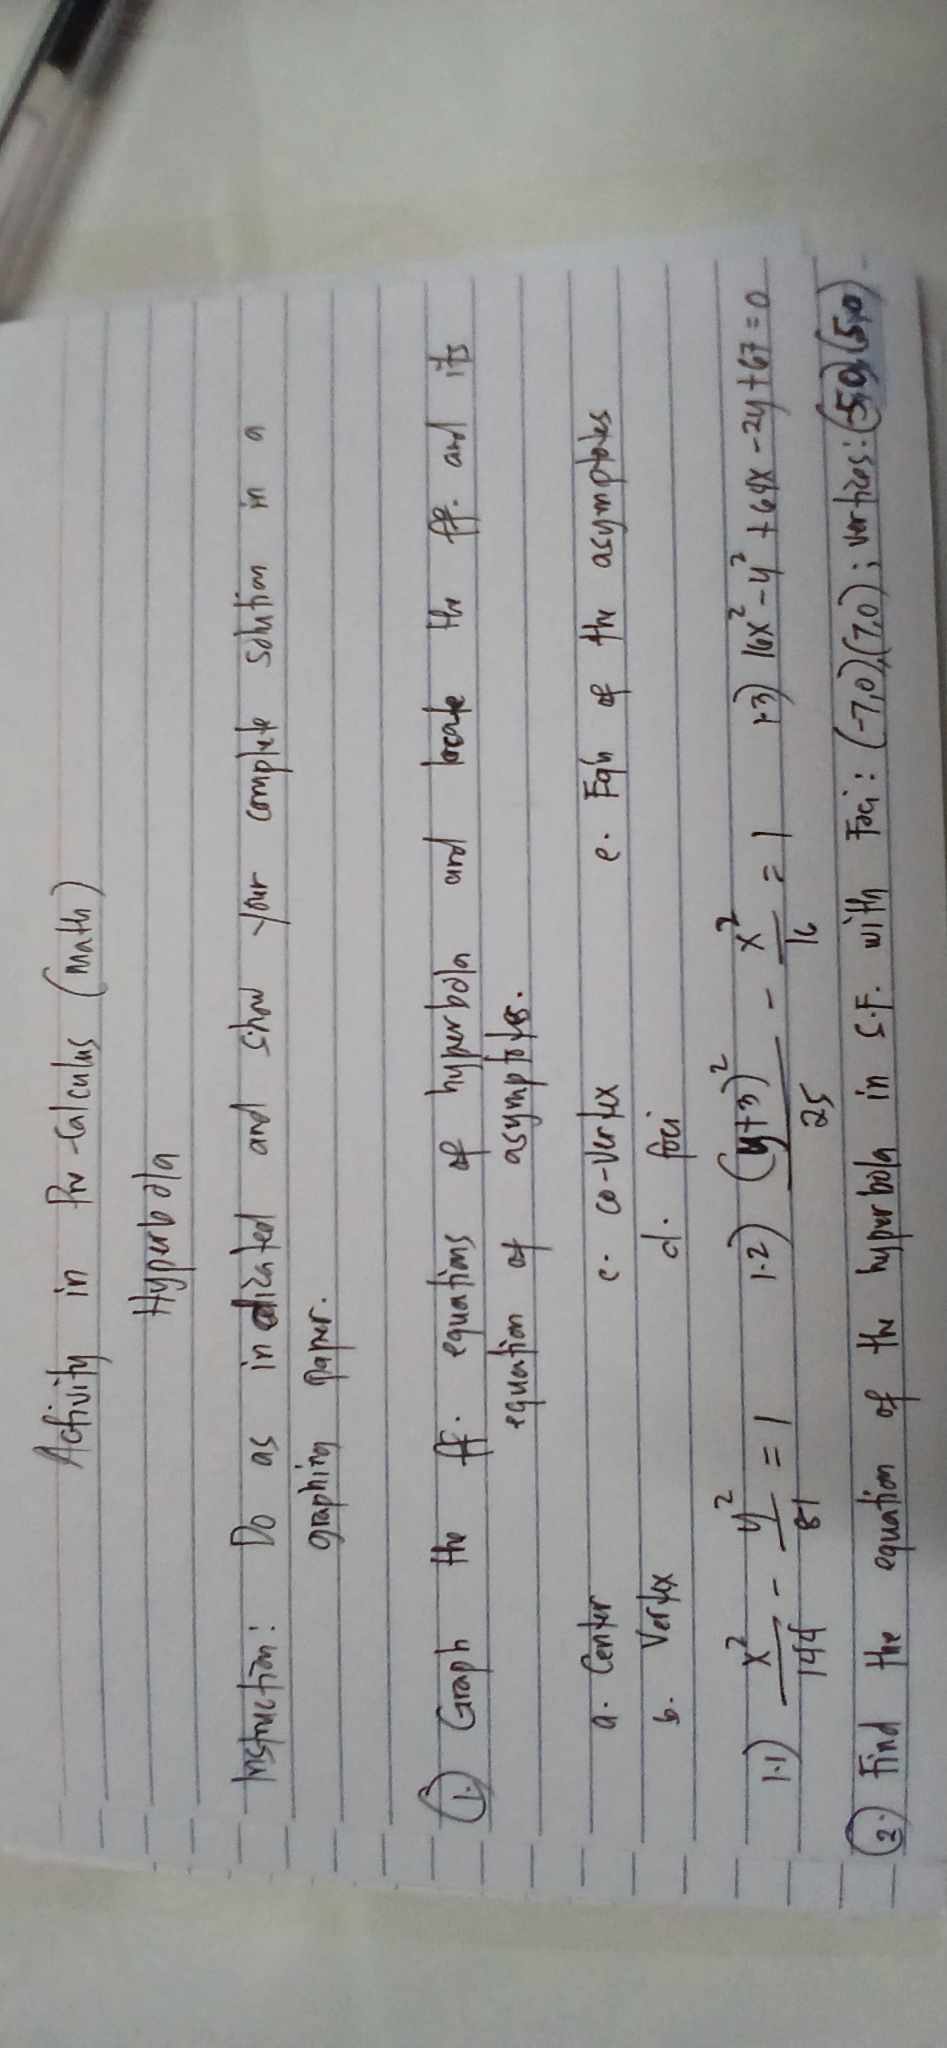 Activity in Pre-Calculus (Math)
Hyperbola
Instruction: Do as indicated and show your complete solution in a
graphing paper.
1.) Graph the ff. equations of hyperbola and locate the ff. and its
equation of asymptotes.
a. Center c. co-vertex e. Eq'n of the asymptotes
b. Vertex d. foci
1.1) x²/144 - y²/81 = 1 1.2) (y+3)²/25 - x²/16 = 1 1.3) 16x² - y² + 64x - 2y + 67 = 0
2.) Find the equation of the hyperbola in S.F. with Foci: (-7,0),(7,0); vertices: (-5,0),(5,0)